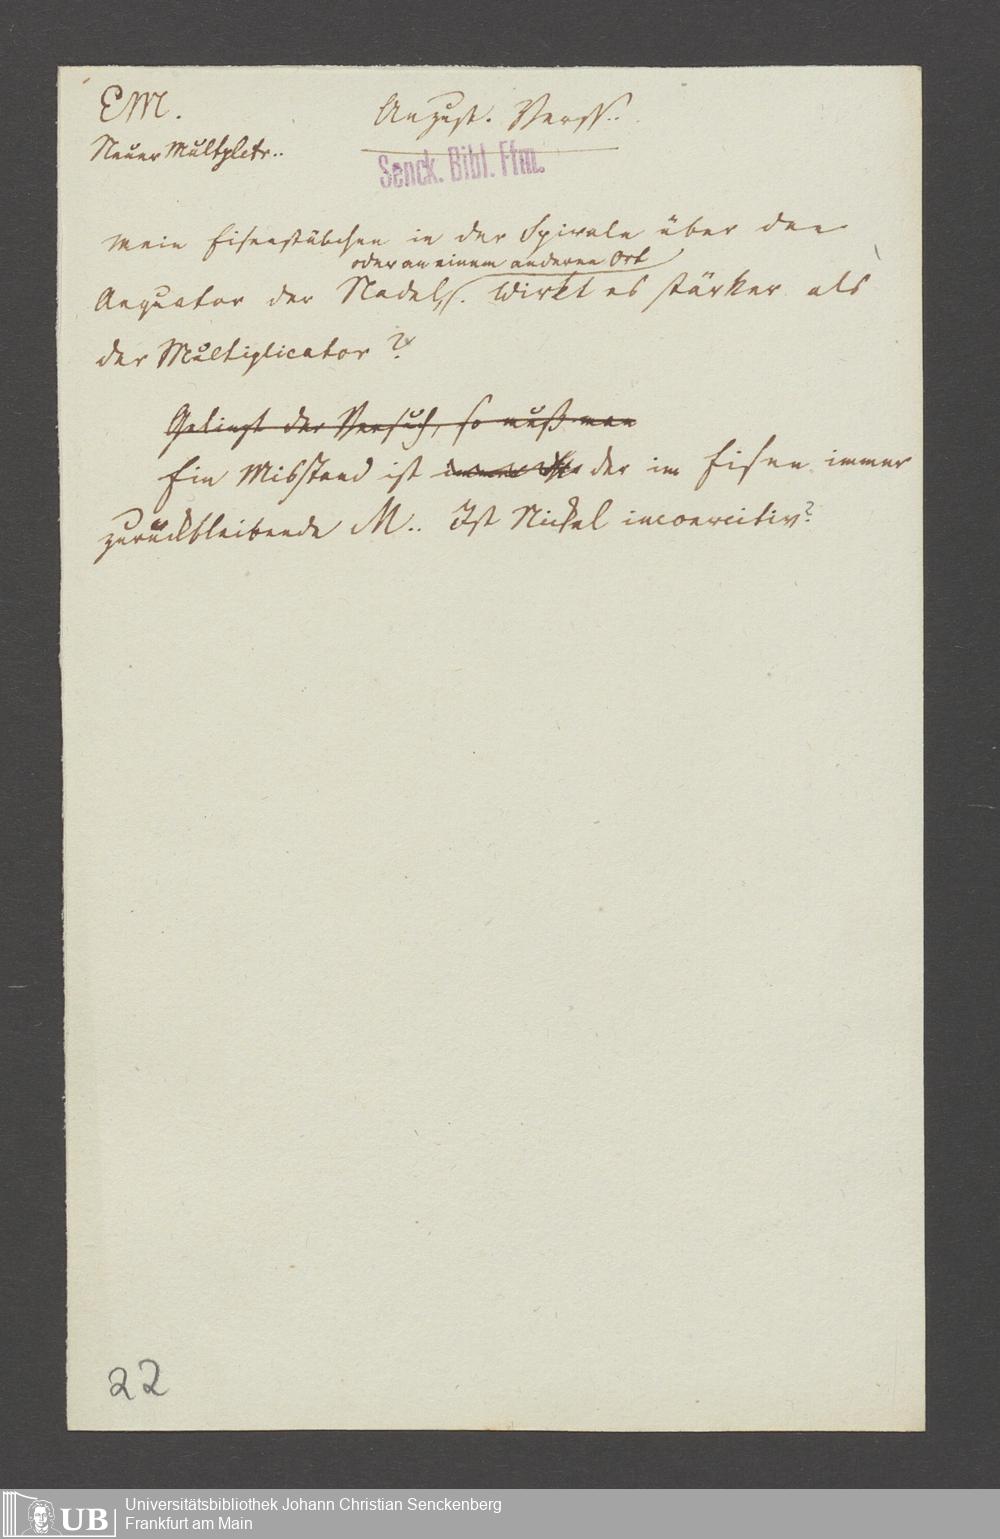 EM.
August. Verss..
Neuer Multplctr..
Senck. Bibl. Ffm.
Mein Eisenstäbchen in der Spirale über den
oder an einem anderen Ort
Aequator der Nadel. Wirkt es stärker als
der Multiplicator?
Gelingt der Versuch, so muß man
Ein Misstand ist immer der im Eisen immer
zurückbleibende M.. Ist Nickel incoercitiv?
22
UB
Universitätsbibliothek Johann Christian Senckenberg
Frankfurt am Main